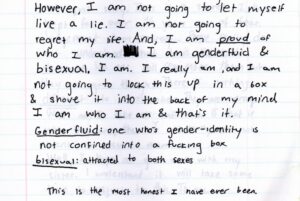 However, I am not going to let myself
live a lie. I am not going to
regret my life. And, I am proud of
who I am. I am genderfluid &
bisexual, I am. I really am, and I am
not going to lock this up in a box
& shove it into the back of my mind
I am who I am & that's it.
Genderfluid: one who's gender-identity is
not confined into a fucking box
bisexual: attracted to both sexes
This is the most honest I have ever been